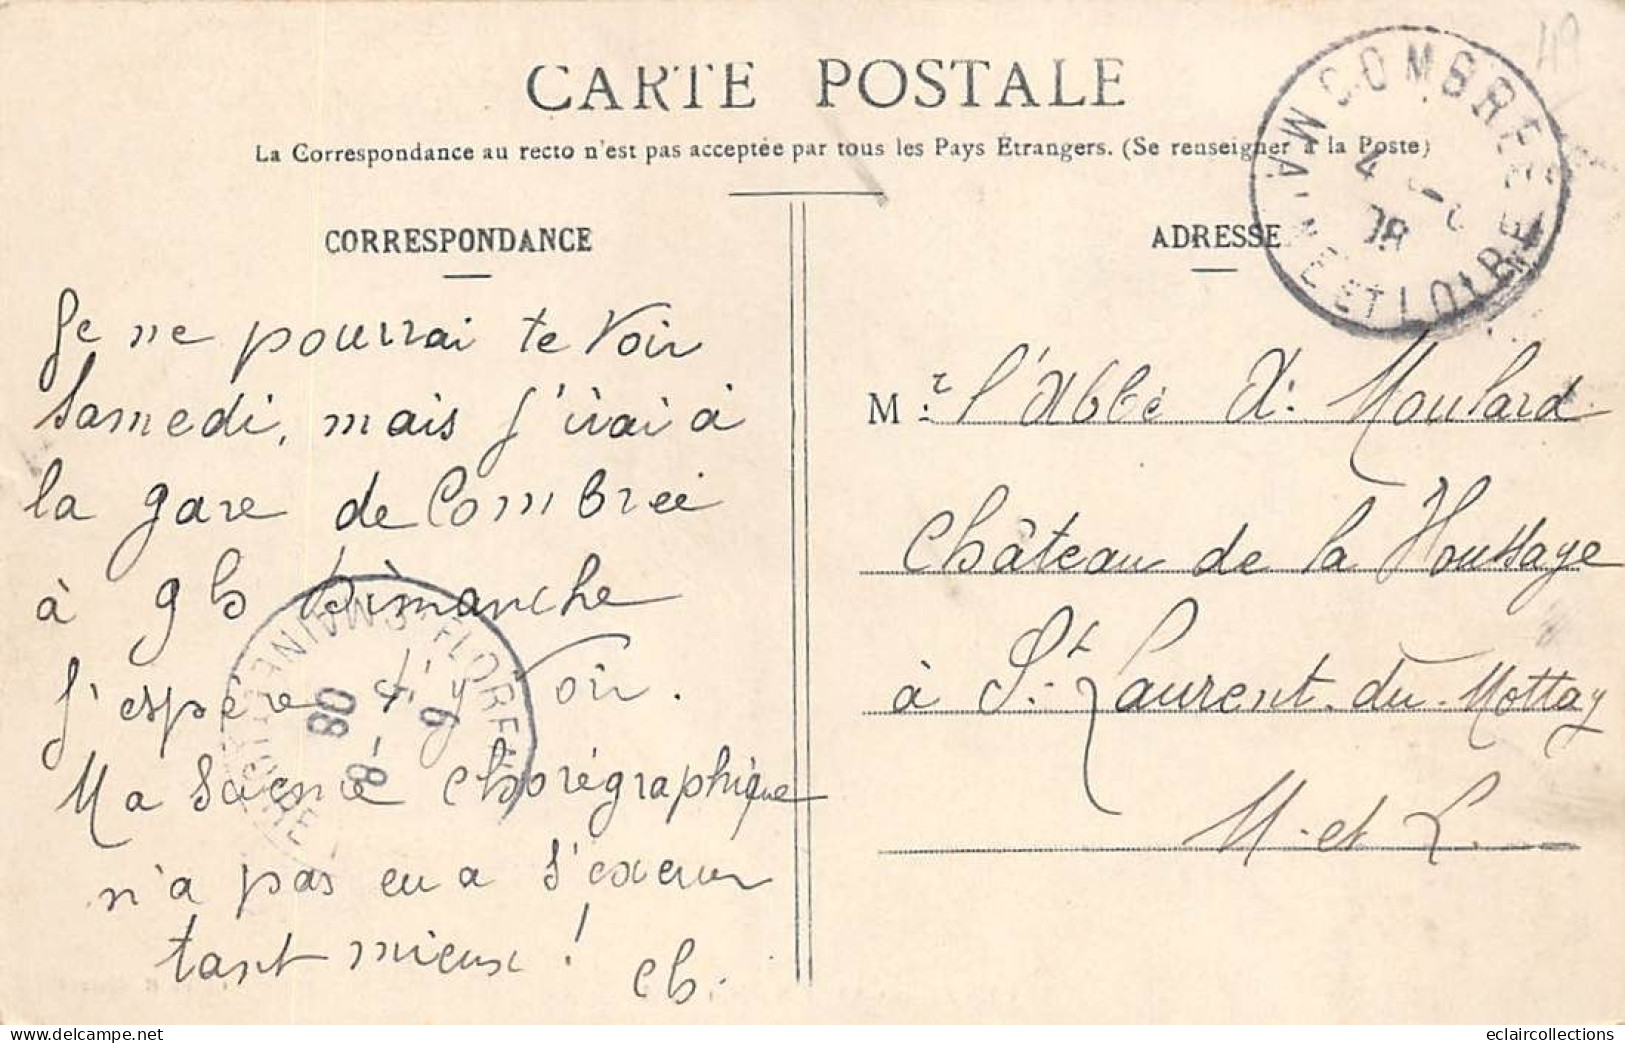 CARTE POSTALE
La Correspondance au recto n'est pas acceptée par tous les Pays Étrangers. (Se renseigner à la Poste)
COMBRÉE
MAINE ET LOIRE
4
08
49
CORRESPONDANCE
Je ne pourrai te voir
Samedi, mais j'irai à
la gare de Combrée
à 9h Dimanche
J'espère t'y voir.
Ma science chorégraphique
n'a pas eu a s'exercer
tant mieux !
ch.
MAINE ET LOIRE
6
8
08
ADRESSE
M.r l'Abbé X. Moulard
Château de la Houssaye
à St Laurent-du-Mottay
M-et L.
delcampe.net
eclaircollections